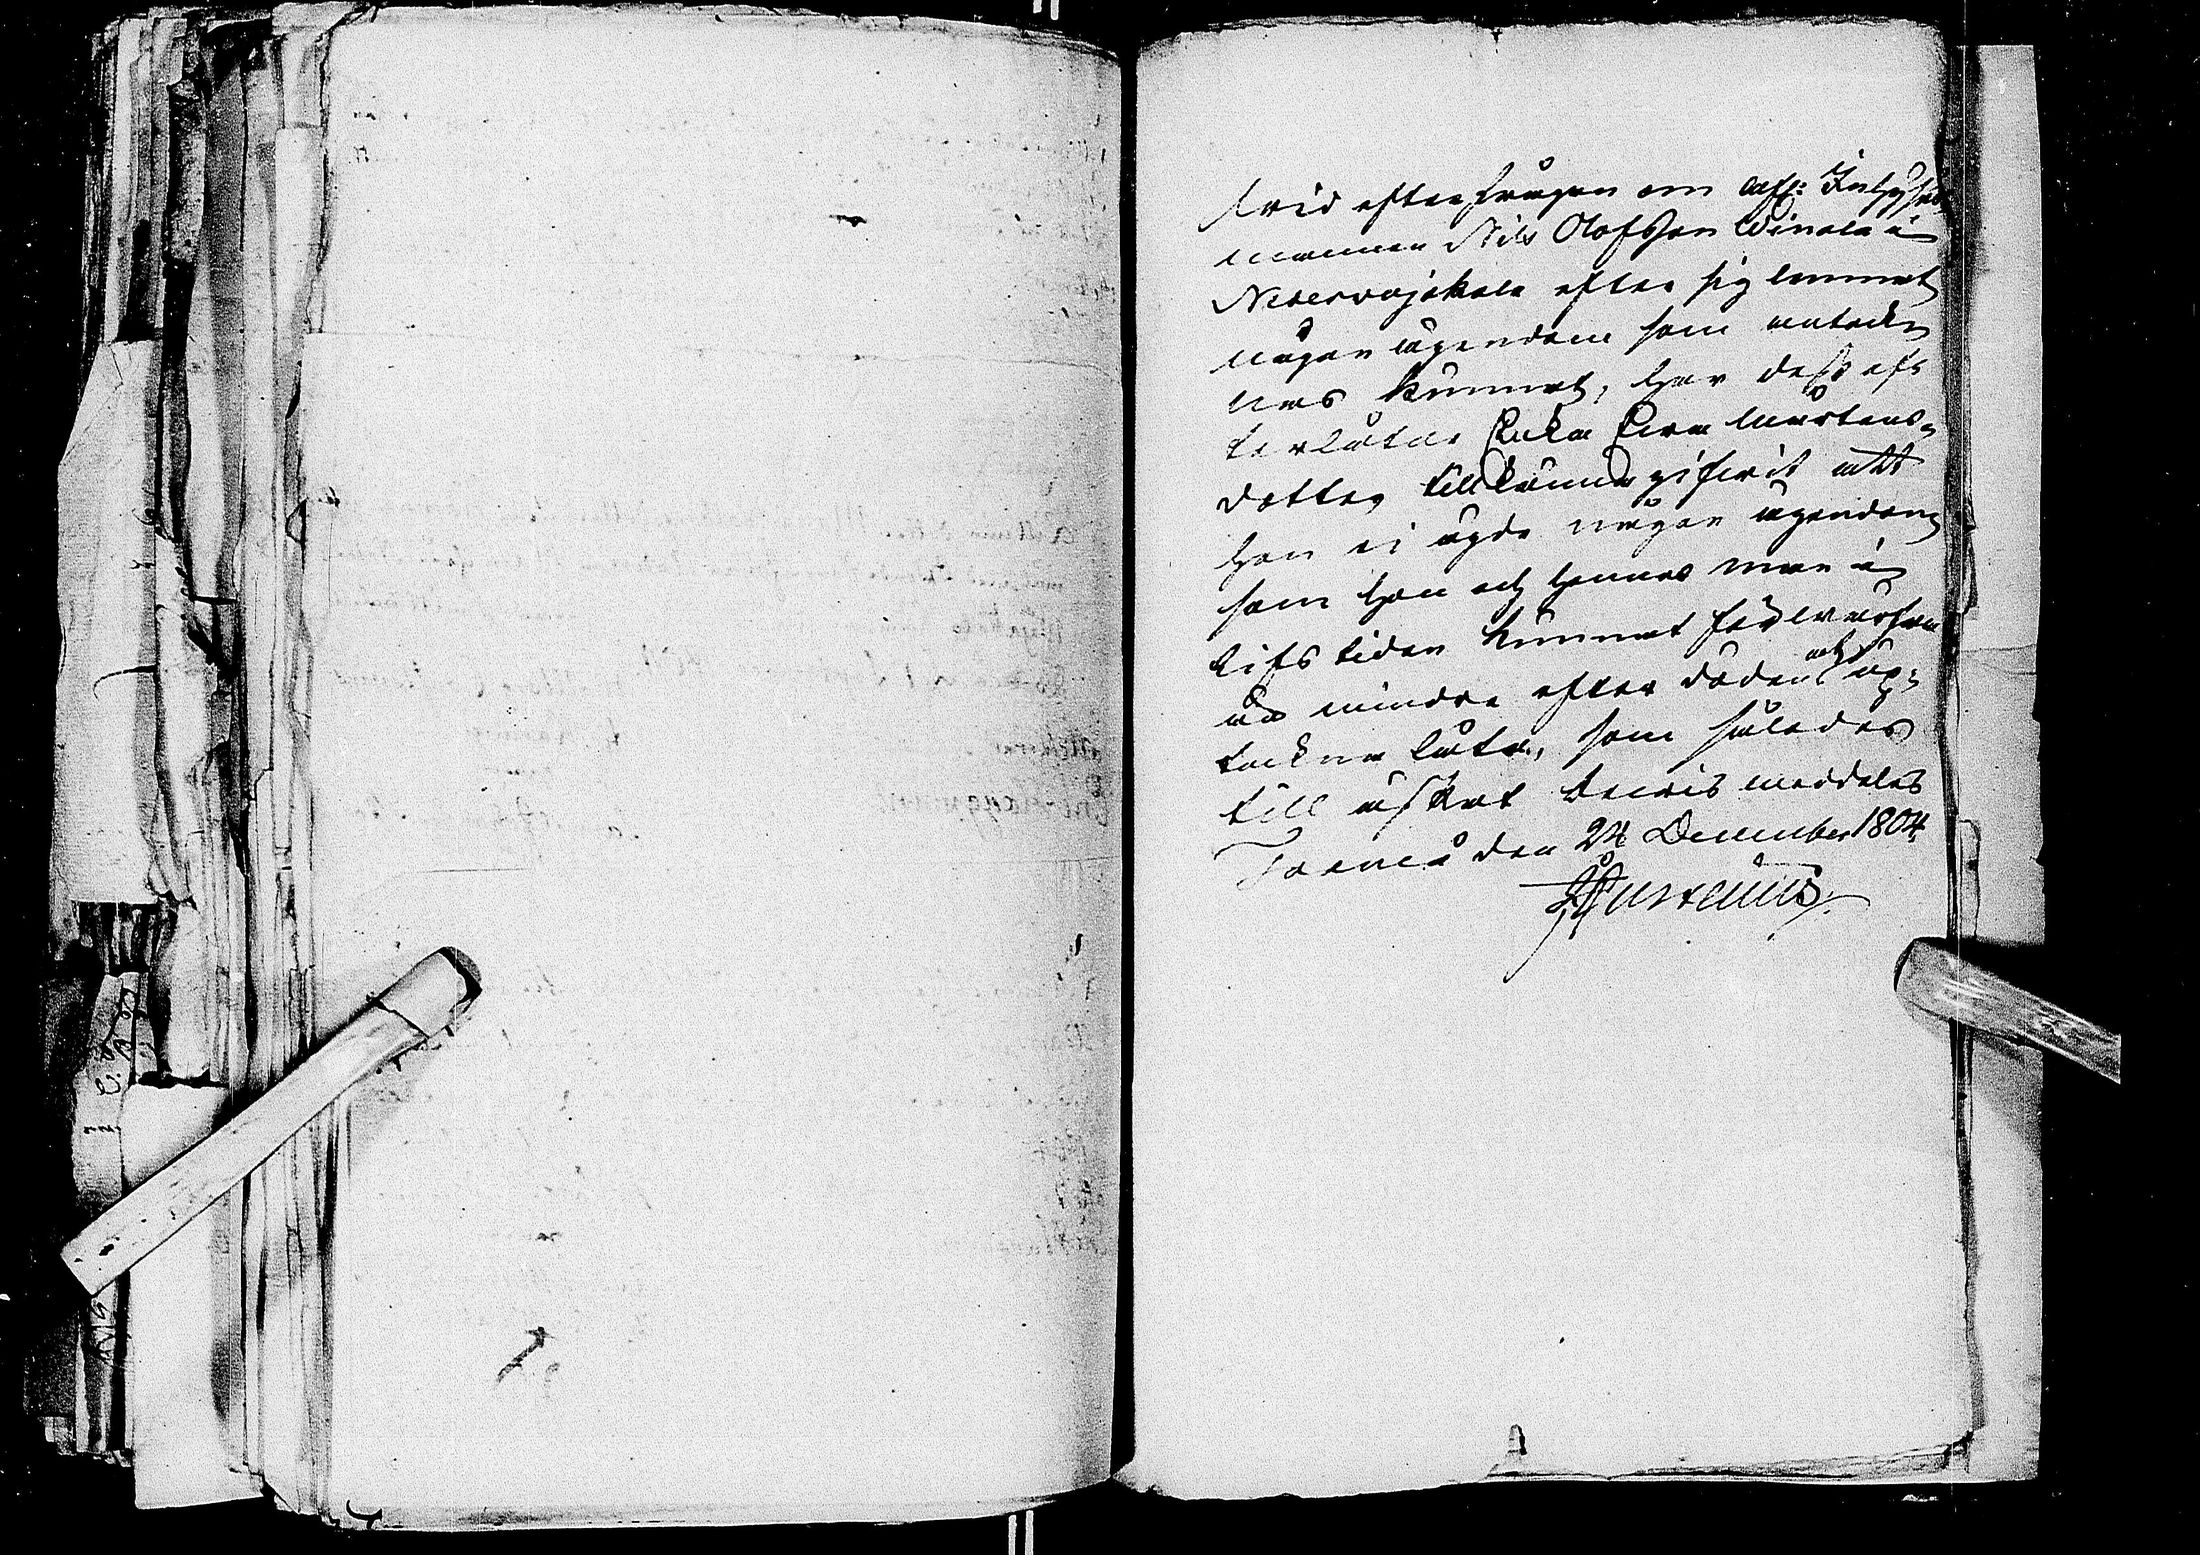 Wid efterfrågan om afl: Inhyses
mannen Nils Olofsson Winsa i
Nedervojakala efter sig lemnat
någon ägendom som anteck
nas kunnat, har dess eft
terlåtne Enka Lisa Mårtens-
dotter tillkänna gifwit att
hon ei ägde någon ägendom
som hon och hennes man i
lifstiden kunnat förwärfva
än mindre efter döden och up-
teckna låta, som således
till äskat bewis meddelas
Torneå den 24 December 1804